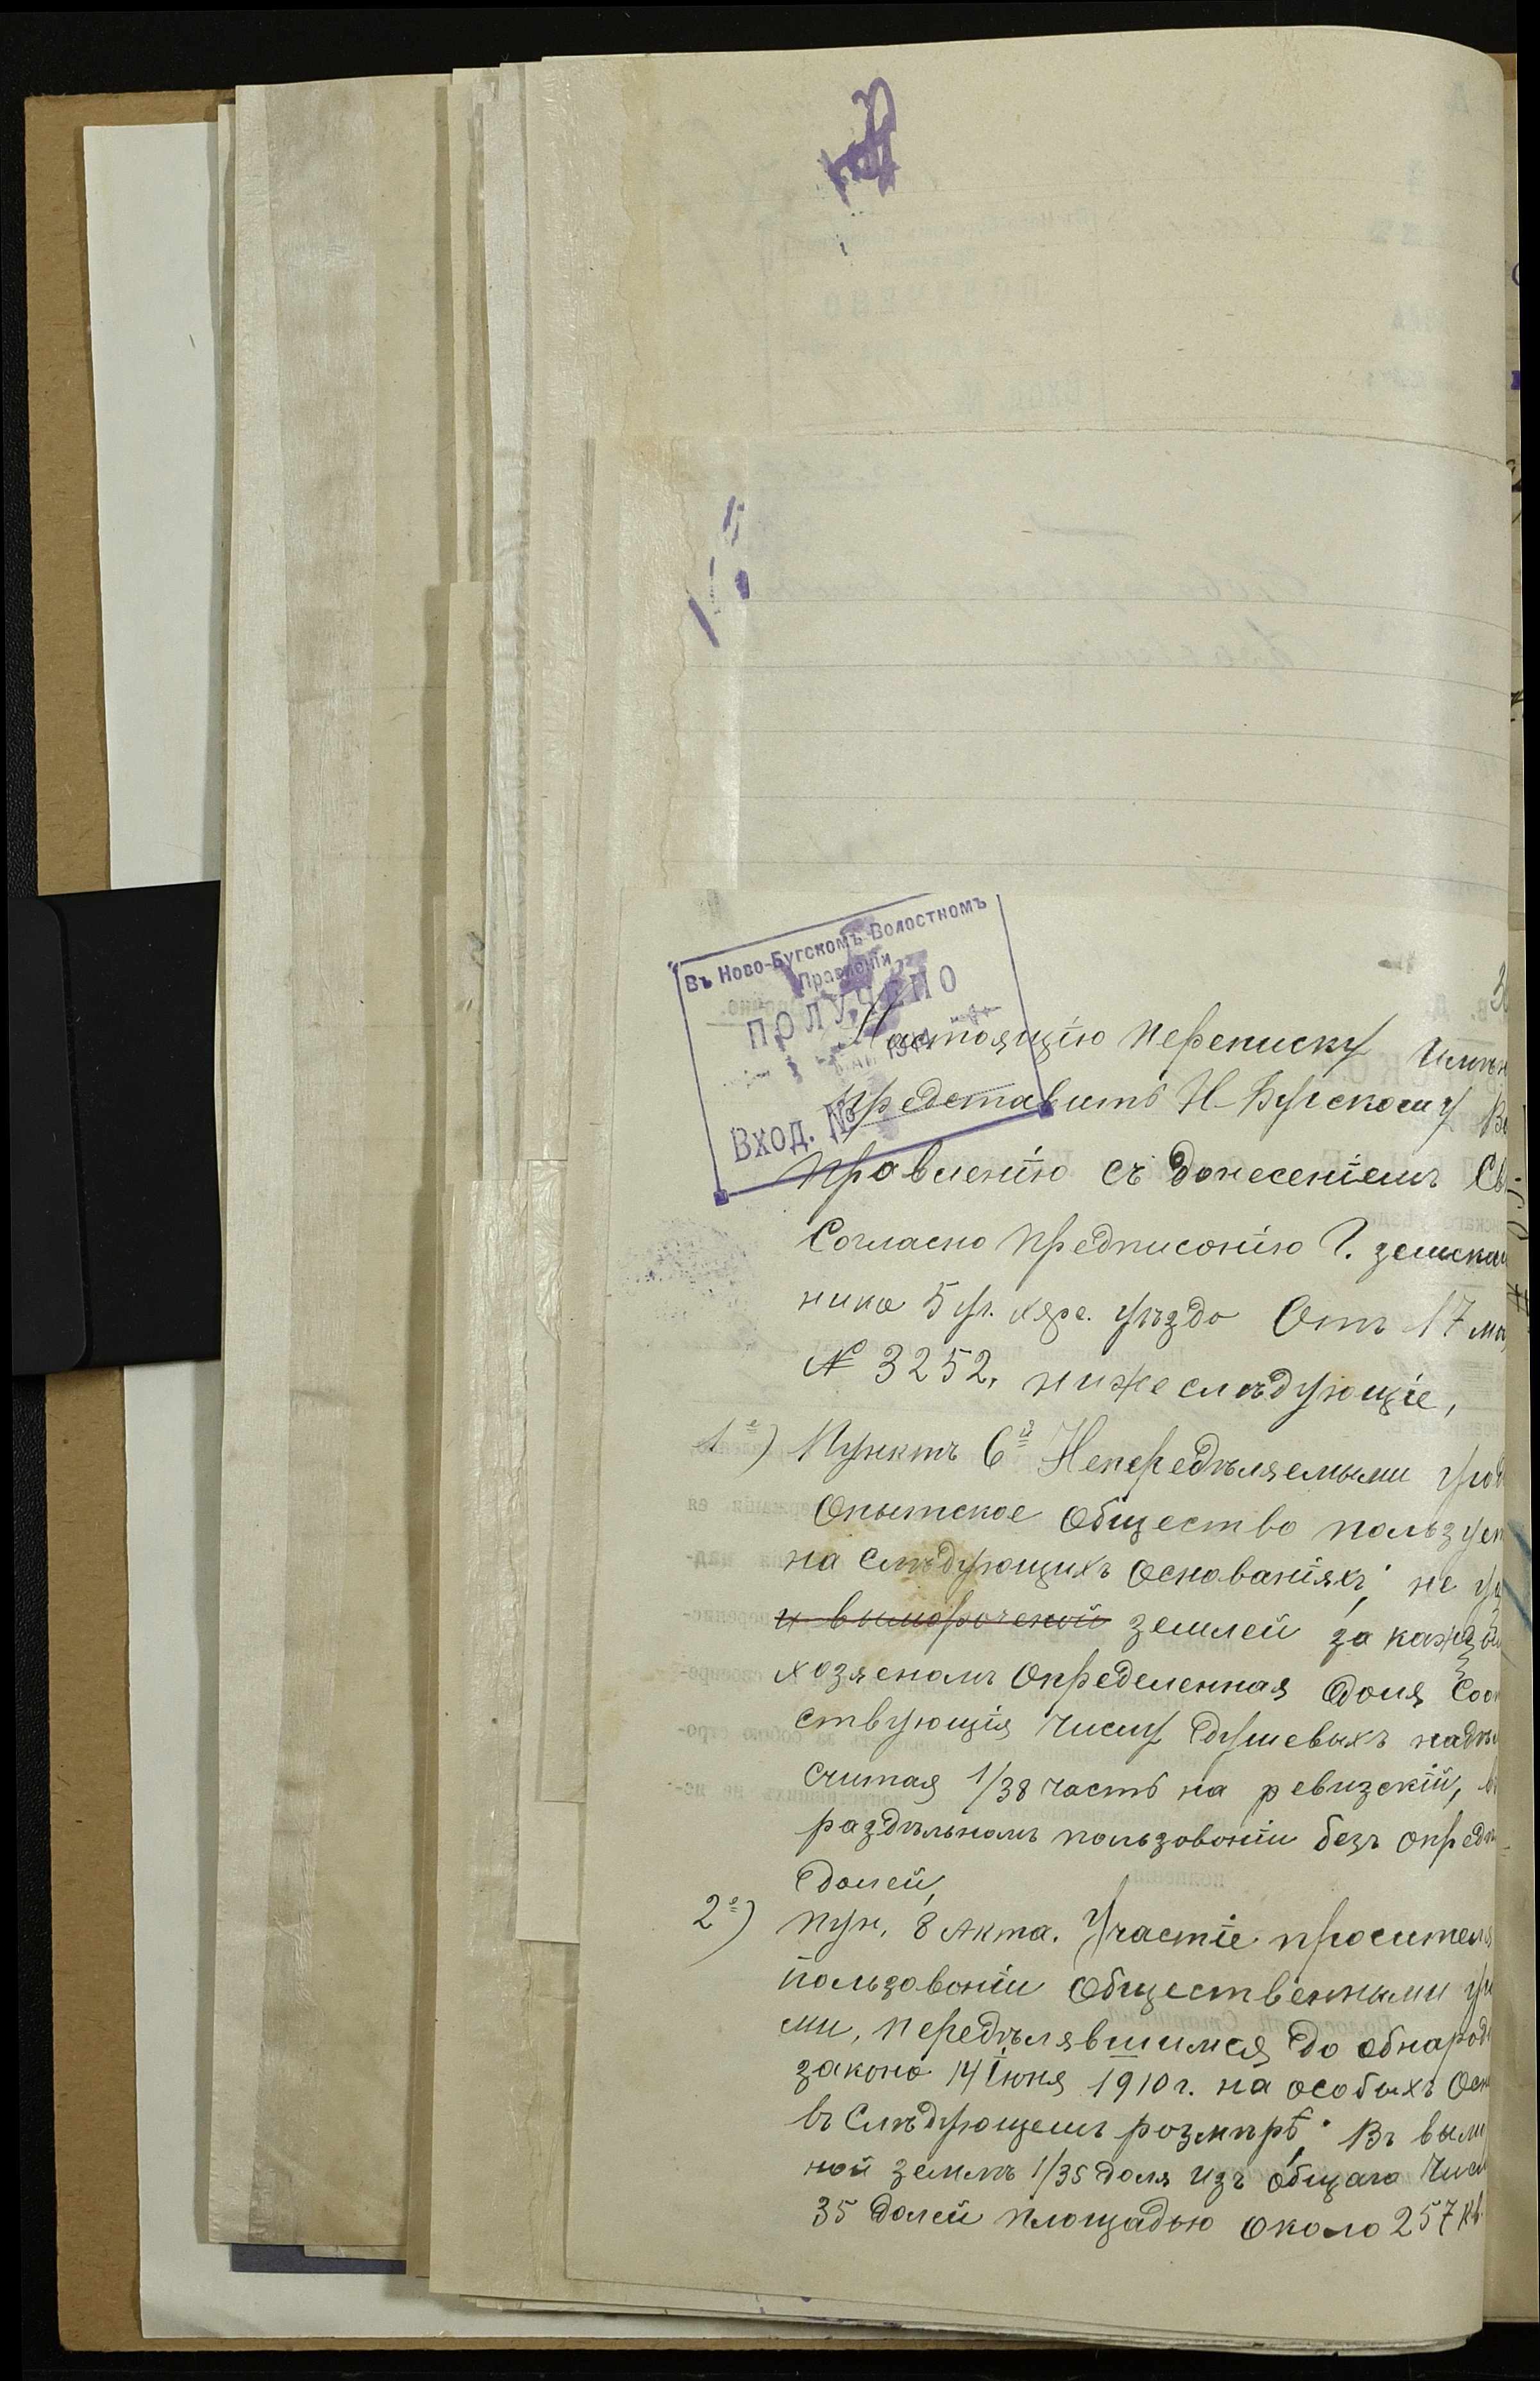 Въ Ново-Бугскомъ Волостномъ
Правленіи
ПОЛУЧЕНО
Вход. №
Настоящію переписку имѣю
представить Н-Бугскому Во
Правленію съ донесеніемъ Св
Согласно предписонію Г. земскаг
ника 5 уч. хере. уѣздо Отъ 17 ма
№ 3252, нижеслѣдующіе,
1е) Пунктъ 6й Непередѣляемыми уго
Опытское Общество пользует
на Слѣдующихъ Основаніяхъ; не
и выморочной землей за кажды
хозяеномъ Определенная Доля Соот
ствующія Числу Душевыхъ надѣл
Считая 1/38 часть на ревизскій, въ
раздѣльномъ пользовоніи безъ опредѣ
долей,
2е) пун. 8 Акта. Участіе просителя
пользовоніи Общественными уг
ми, передѣлявшимся до обнарод
законо 14 Іюня 1910 г. на особыхъ Осн
въ Слѣдующемъ розмѣрѣ; Въ вым
ной землѣ 1/35 доля изъ общаго Числ
35 долей площадью Около 257 кв.